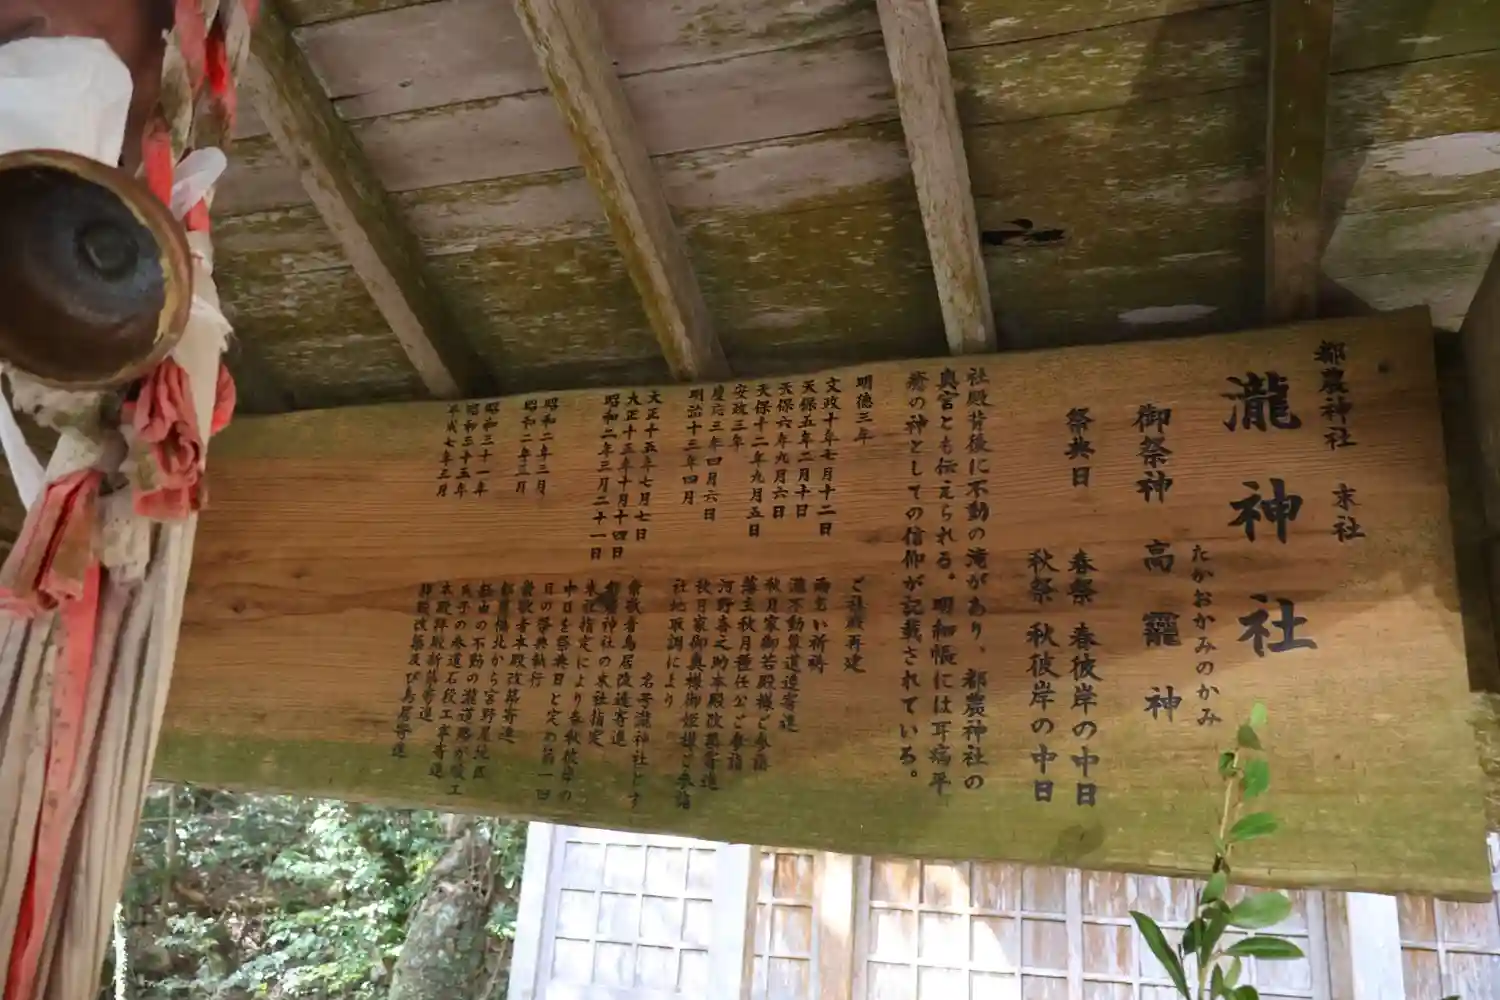 都農神社 末社
瀧神社
たかおかみのかみ
御祭神 高龗神
祭典日 春祭 春彼岸の中日
秋祭 秋彼岸の中日
社殿背後に不動の滝があり、都農神社の
奥宮とも伝えられる。明細帳には耳病平
癒の神としての信仰が記載されている。
明徳三年 ご社殿再建
文政十年七月十二日 雨乞い祈祷
天保五年二月十日 瀧不動算道造寄進
天保六年九月六日 秋月家御若殿様ご参詣
天保十二年九月五日 藩主秋月種任公ご参詣
安政三年 河野喜之助本殿改築寄進
慶応三年四月六日 秋月家御奥様御姫様ご参詣
明治十三年四月 社地取調により
名号瀧神社とす
大正十五年七月七日 崇敬者鳥居改造寄進
大正十三年十月十四日 都農神社の末社指定
昭和二年三月二十一日 末社指定により春秋彼岸の
中日を祭典日と定め第一回
目の祭典執行
昭和二年三月 崇敬者本殿改築寄進
昭和二年三月 都農橋北から宮野尾地区
経由の不動の瀧道路が竣工
昭和三十一年 氏子の参道石段工事寄進
昭和三十五年 本殿拝殿新築寄進
平成七年三月 拝殿改築及び鳥居寄進